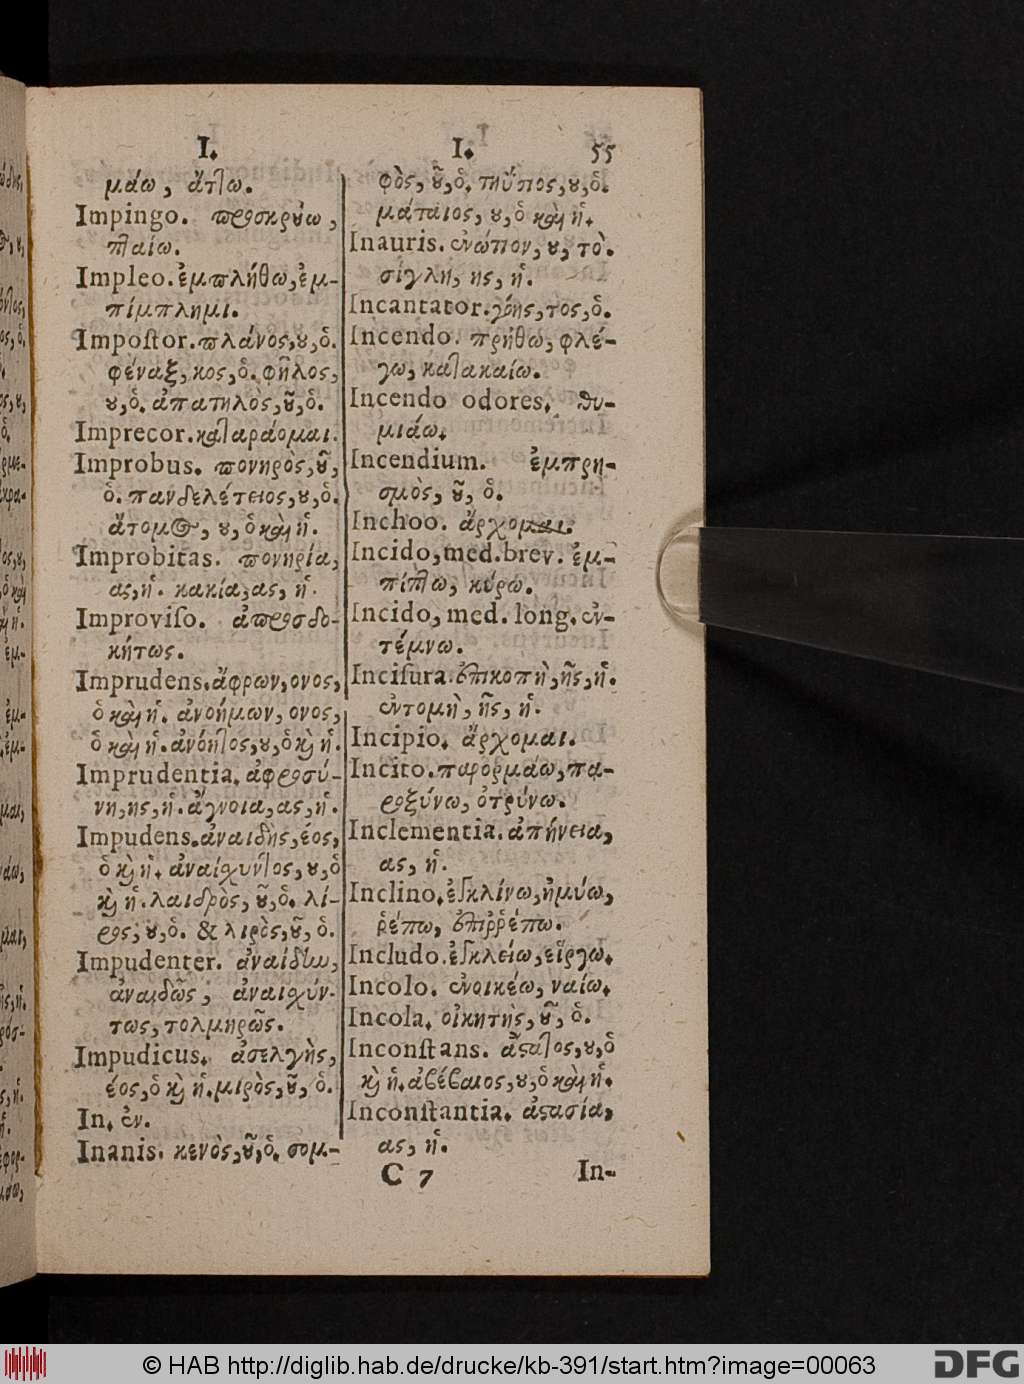 I.
μάω, ἄτlω.
Impingo. προσκρούω,
πlαίω.
Impleo. ἐμπλήθω, ἐμ-
πίμπλημι.
Impoſtor. πλάνος, ου, ὁ.
φέναξ, κος, ὁ. φῆλος,
ου, ὁ. ἀπατηλὸς, οῦ, ὁ.
Imprecor. καταράομαι.
Improbus. πονηρὸς, οῦ,
ὁ. πανδελέτειος, ου, ὁ.
ἄτομος, ου, ὁ καὶ ἡ.
Improbitas. πονηρία,
ας, ἡ. κακία, ας, ἡ.
Improviſo. ἀπροσδο-
κήτως.
Imprudens. ἄφρων, ονος,
ὁ καὶ ἡ. ἀνοήμων, ονος,
ὁ καὶ ἡ. ἀνόητος, ου, ὁ καὶ ἡ.
Imprudentia. ἀφροσύ-
νη, ης, ἡ. ἄγνοια, ας, ἡ.
Impudens. ἀναιδὴς, έος,
ὁ καὶ ἡ. ἀναίσχυντος, ου, ὁ
καὶ ἡ. λαιδρὸς, οῦ, ὁ. λί-
ρος, ου, ὁ. & λιρὸς, οῦ, ὁ.
Impudenter. ἀναίδην,
ἀναιδῶς, ἀναισχύν-
τως, τολμηρῶς.
Impudicus. ἀσελγὴς,
έος, ὁ καὶ ἡ. μιρὸς, οῦ, ὁ.
In. ἐν.
Inanis. κενὸς, οῦ, ὁ. σομ-
I. 55
φὸς, οῦ, ὁ. τηΰπος, ου, ὁ.
μάταιος, ου, ὁ καὶ ἡ.
Inauris. ἐνώπον, ου, τὸ.
σίγλη, ης, ἡ.
Incantator. γόης, τος, ὁ.
Incendo. πρήθω, φλέ-
γω, κατακαίω.
Incendo odores. θυ-
μιάω.
Incendium. ἐμπρη-
σμὸς, οῦ, ὁ.
Inchoo. ἄρχομαι.
Incido, med. brev. ἐμ-
πίπlω, κύρω.
Incido, med. long. ἐν-
τέμνω.
Inciſura. ἐπικοπὴ, ῆς, ἡ.
ἐντομὴ, ῆς, ἡ.
Incipio. ἄρχομαι.
Incito. παρορμάω, πα-
ροξύνω, ὀτρύνω.
Inclementia. ἀπήνεια,
ας, ἡ.
Inclino. ἐγκλίνω, ἠμύω,
ῥέπω, ἐπιῤῥέπω.
Includo. ἐγκλείω, εἵργω.
Incolo. ἐνοικέω, ναίω.
Incola. οἰκητὴς, οῦ, ὁ.
Inconſtans. ἄστατος, ου, ὁ
καὶ ἡ. ἀβέβαιος, ου, ὁ καὶ ἡ.
Inconſtantia. ἀστασία,
ας, ἡ.
C 7 In-
© HAB http://diglib.hab.de/drucke/kb-391/start.htm?image=00063
DFG